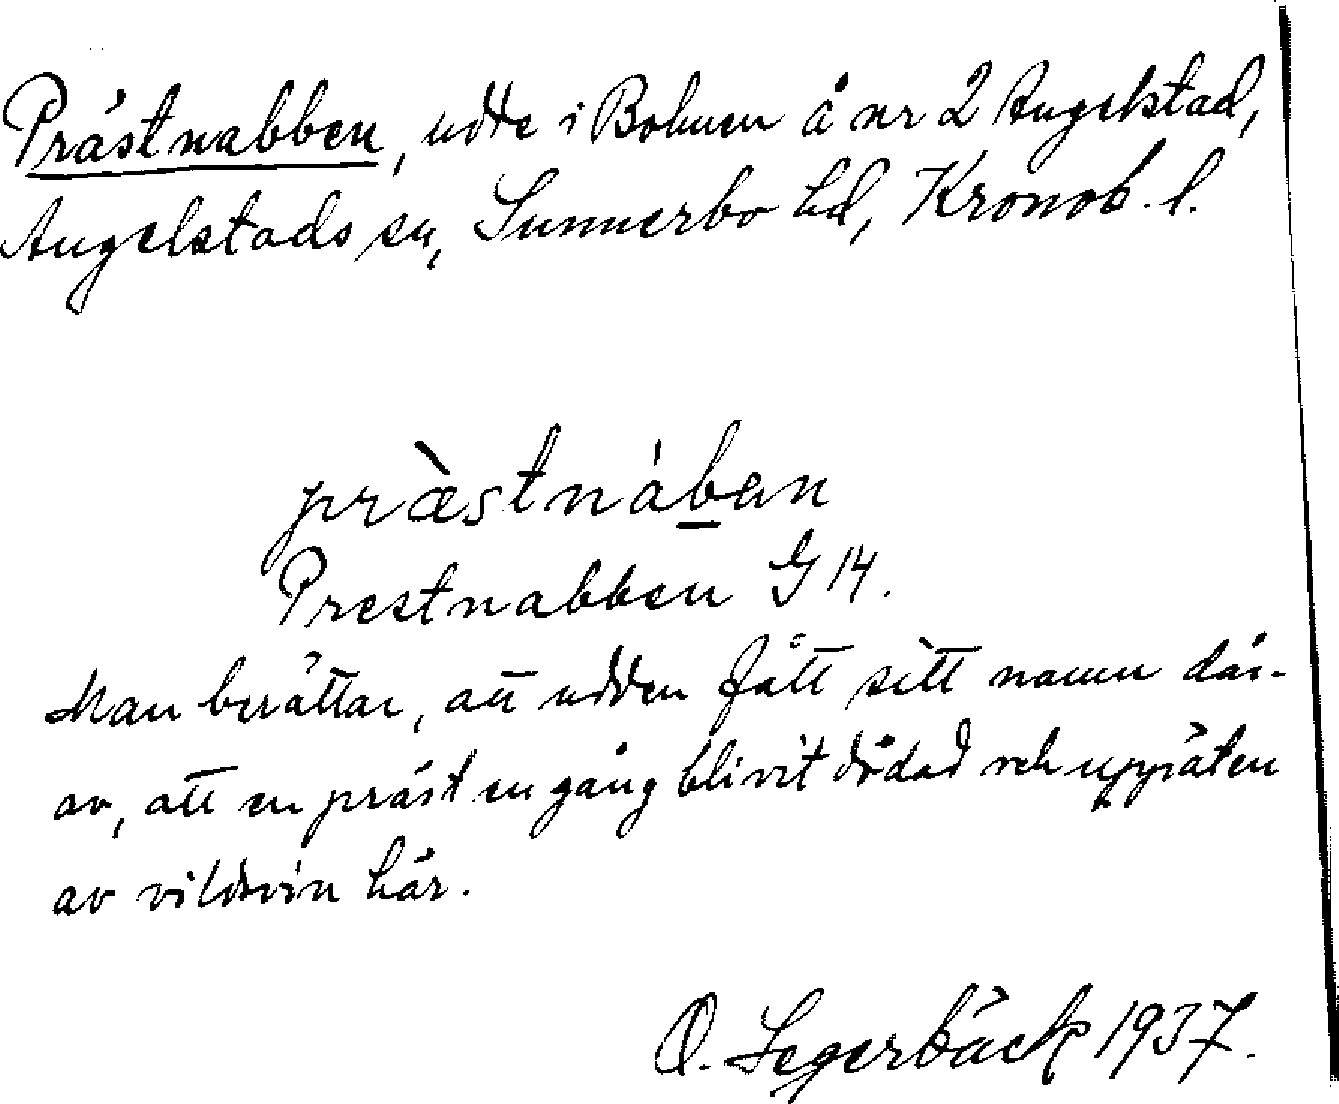 Prästnabben, udde i Bolmen å nr 2 Angelstad,
Angelstads sn, Sunnerbo hd, Kronob. l.
præ̀stnáb̲an
Prestnabben G 14.
Man berättar, att udden fått sitt namn där-
av, att en präst en gång blivit dödad och uppäten
av vildsvin här.
O. Segerbäck 1937.